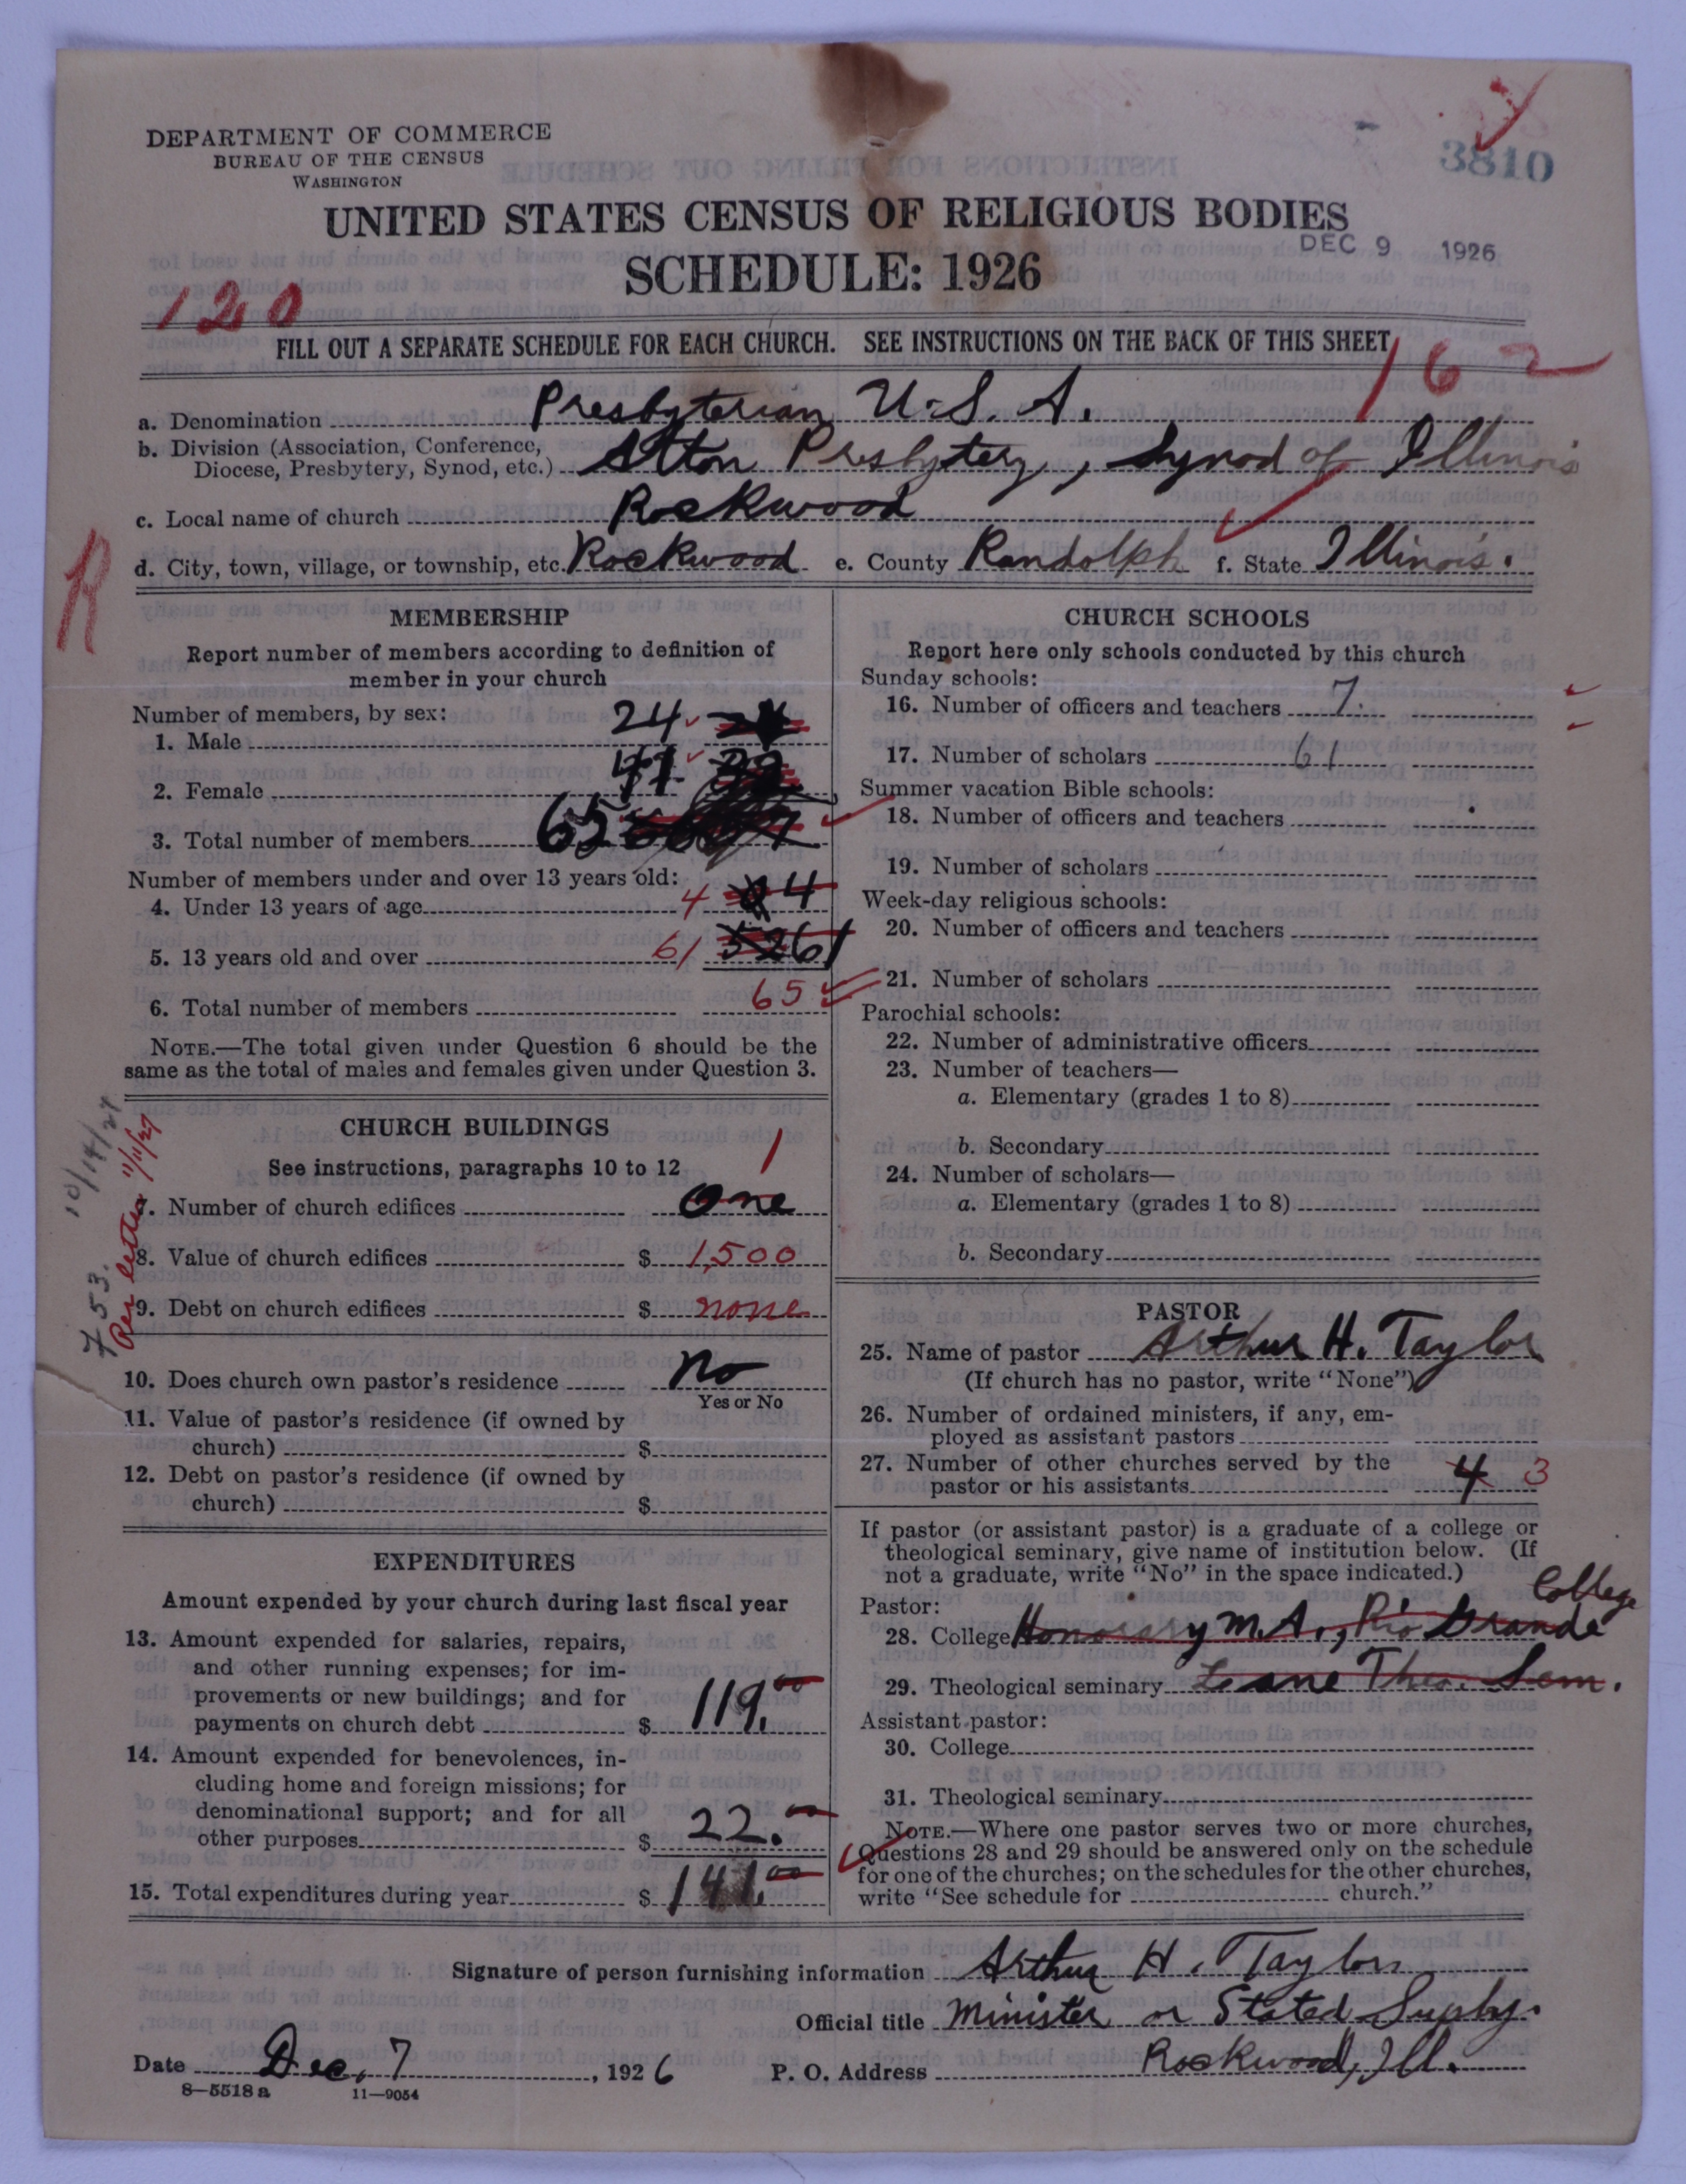 DEPARTMENT OF COMMERCE
BUREAU OF THE CENSUS
WASHINGTON
3810
UNITED STATES CENSUS OF RELIGIOUS BODIES
DEC 9 1926
SCHEDULE: 1926
120
FILL OUT A SEPARATE SCHEDULE FOR EACH CHURCH. SEE INSTRUCTIONS ON THE BACK OF THIS SHEET
162
a. Denomination Presbyterian U.S.A.
b. Division (Association, Conference,
Diocese, Presbytery, Synod, etc.) Alton Presbytery, Synod of Illinois
c. Local name of church Rockwood
d. City, town, village, or township, etc. Rockwood e. County Randolph f. State Illinois.
R
MEMBERSHIP
Report number of members according to definition of
member in your church
Number of members, by sex:
1. Male 24
2. Female 41
3. Total number of members 65
Number of members under and over 13 years old:
4. Under 13 years of age 4 4
5. 13 years old and over 61 52 61
6. Total number of members 65
NOTE.—The total given under Question 6 should be the
same as the total of males and females given under Question 3.
10/14/27
753.
Per letter 11/11/27
CHURCH BUILDINGS
See instructions, paragraphs 10 to 12
1
7. Number of church edifices one
8. Value of church edifices $ 1,500
9. Debt on church edifices $ none
10. Does church own pastor's residence No
Yes or No
11. Value of pastor's residence (if owned by
church) $
12. Debt on pastor's residence (if owned by
church) $
EXPENDITURES
Amount expended by your church during last fiscal year
13. Amount expended for salaries, repairs,
and other running expenses; for im-
provements or new buildings; and for
payments on church debt $ 119.00
14. Amount expended for benevolences, in-
cluding home and foreign missions; for
denominational support; and for all
other purposes $ 22.00
15. Total expenditures during year $ 141.00
CHURCH SCHOOLS
Report here only schools conducted by this church
Sunday schools:
16. Number of officers and teachers 7.
17. Number of scholars 61
Summer vacation Bible schools:
18. Number of officers and teachers
19. Number of scholars
Week-day religious schools:
20. Number of officers and teachers
21. Number of scholars
Parochial schools:
22. Number of administrative officers
23. Number of teachers—
a. Elementary (grades 1 to 8)
b. Secondary
24. Number of scholars—
a. Elementary (grades 1 to 8)
b. Secondary
PASTOR
25. Name of pastor Arthur H. Taylor
(If church has no pastor, write "None")
26. Number of ordained ministers, if any, em-
ployed as assistant pastors
27. Number of other churches served by the
pastor or his assistants 4 3
If pastor (or assistant pastor) is a graduate of a college or
theological seminary, give name of institution below. (If
not a graduate, write "No" in the space indicated.)
Pastor:
28. College Honorary M.A., Rio Grande College
29. Theological seminary Lane Theo. Sem.
Assistant pastor:
30. College
31. Theological seminary
NOTE.—Where one pastor serves two or more churches,
Questions 28 and 29 should be answered only on the schedule
for one of the churches; on the schedules for the other churches,
write "See schedule for church."
Signature of person furnishing information Arthur H. Taylor
Official title Minister or Stated Supply.
Date Dec. 7, 1926 P. O. Address Rockwood, Ill.
8—5518 a 11—9054